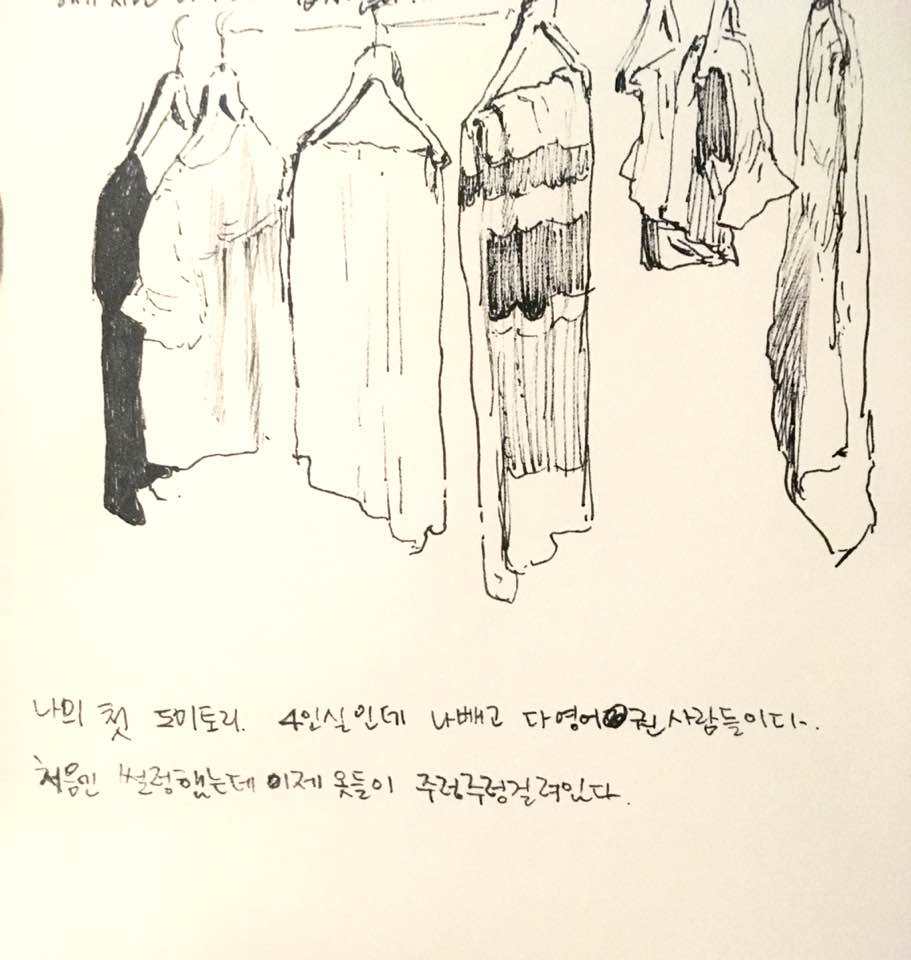 나의 첫 도미토리. 4인실인데 나빼고 다 영어권 사람들이다.
처음엔 썰렁했는데 이제 옷들이 주렁주렁걸려있다.